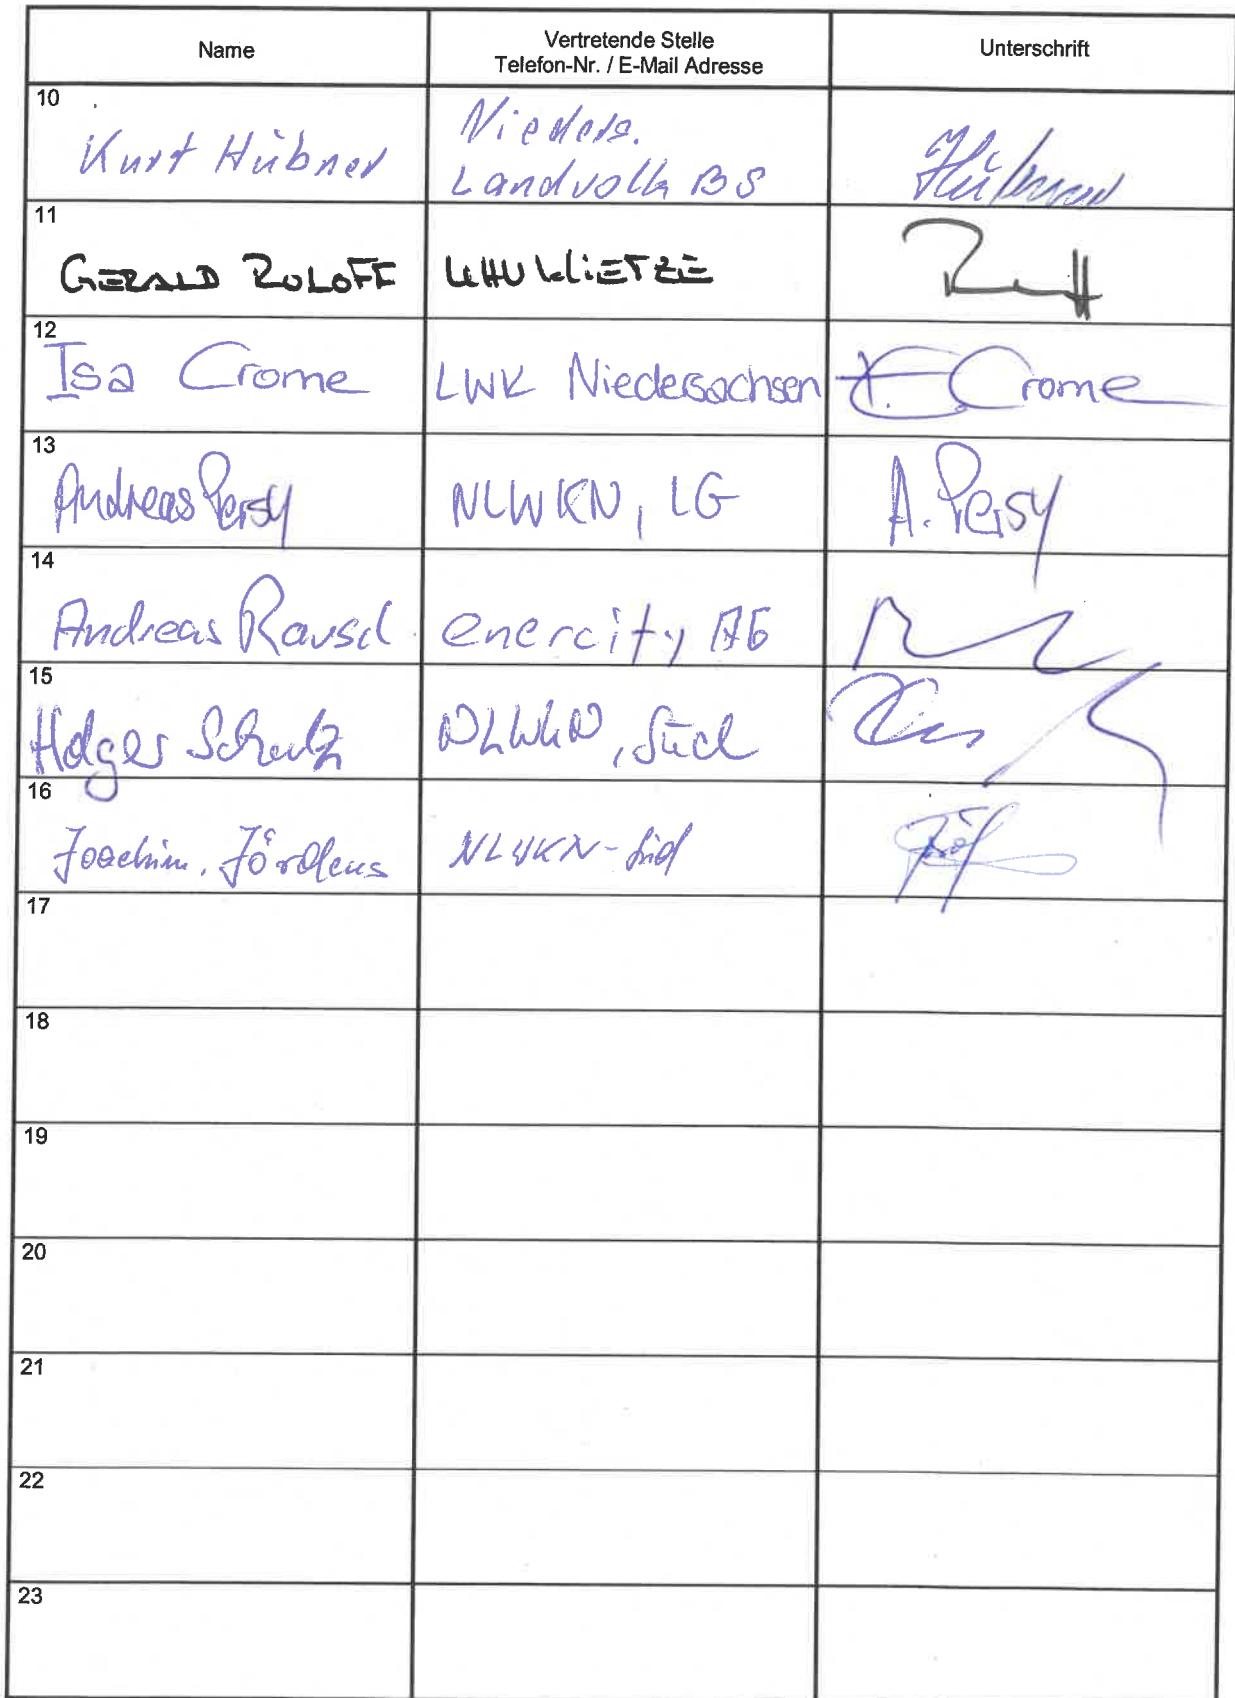 Name
Vertretende Stelle
Telefon-Nr. / E-Mail Adresse
Unterschrift
10
Kurt Hübner
Nieders.
Landvolk BS
Hübner
11
GERALD ROLOFF
12
Isa Crome
LWK Niedersachsen
Crome
13
Andreas Persy
NLWKN, LG
A. Persy
14
Andreas Rausch
enercity AG
15
Holger Schulz
NLWKN, Süd
16
Joachim Jördens
NLWKN-Süd
17
18
19
20
21
22
23